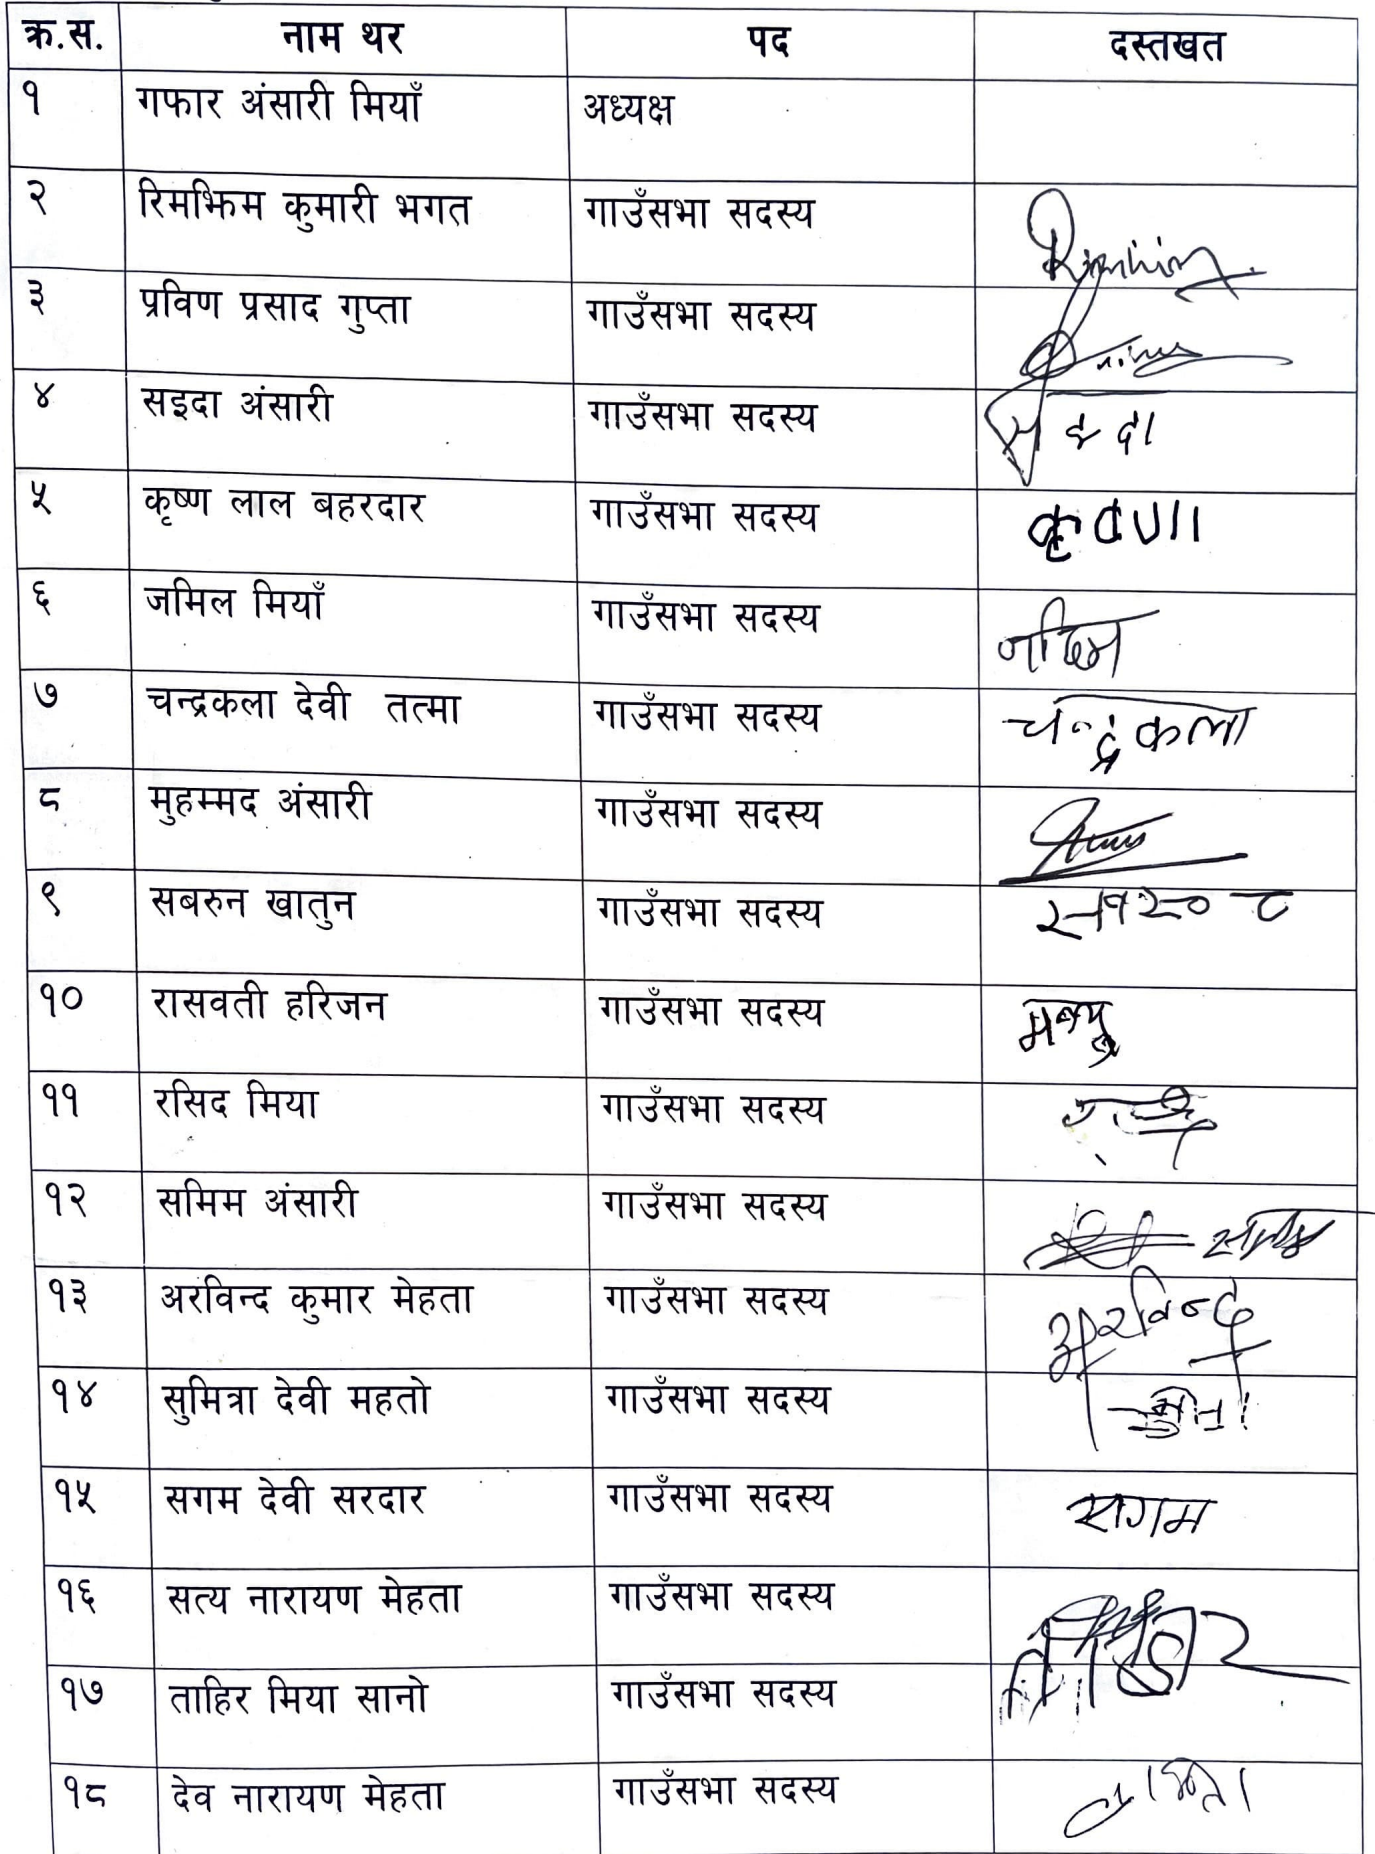 क्र.स. नाम थर पद दस्तखत
१ गफार अंसारी मियाँ अध्यक्ष
२ रिमझिम कुमारी भगत गाउँसभा सदस्य Rimjhim
३ प्रविण प्रसाद गुप्ता गाउँसभा सदस्य
४ सइदा अंसारी गाउँसभा सदस्य सइदा
५ कृष्ण लाल बहरदार गाउँसभा सदस्य
६ जमिल मियाँ गाउँसभा सदस्य
७ चन्द्रकला देवी तत्मा गाउँसभा सदस्य चन्द्रकला
८ मुहम्मद अंसारी गाउँसभा सदस्य
९ सबरुन खातुन गाउँसभा सदस्य
१० रासवती हरिजन गाउँसभा सदस्य
११ रसिद मिया गाउँसभा सदस्य
१२ समिम अंसारी गाउँसभा सदस्य
१३ अरविन्द कुमार मेहता गाउँसभा सदस्य अरविन्द
१४ सुमित्रा देवी महतो गाउँसभा सदस्य
१५ सगम देवी सरदार गाउँसभा सदस्य सगम
१६ सत्य नारायण मेहता गाउँसभा सदस्य
१७ ताहिर मिया सानो गाउँसभा सदस्य
१८ देव नारायण मेहता गाउँसभा सदस्य